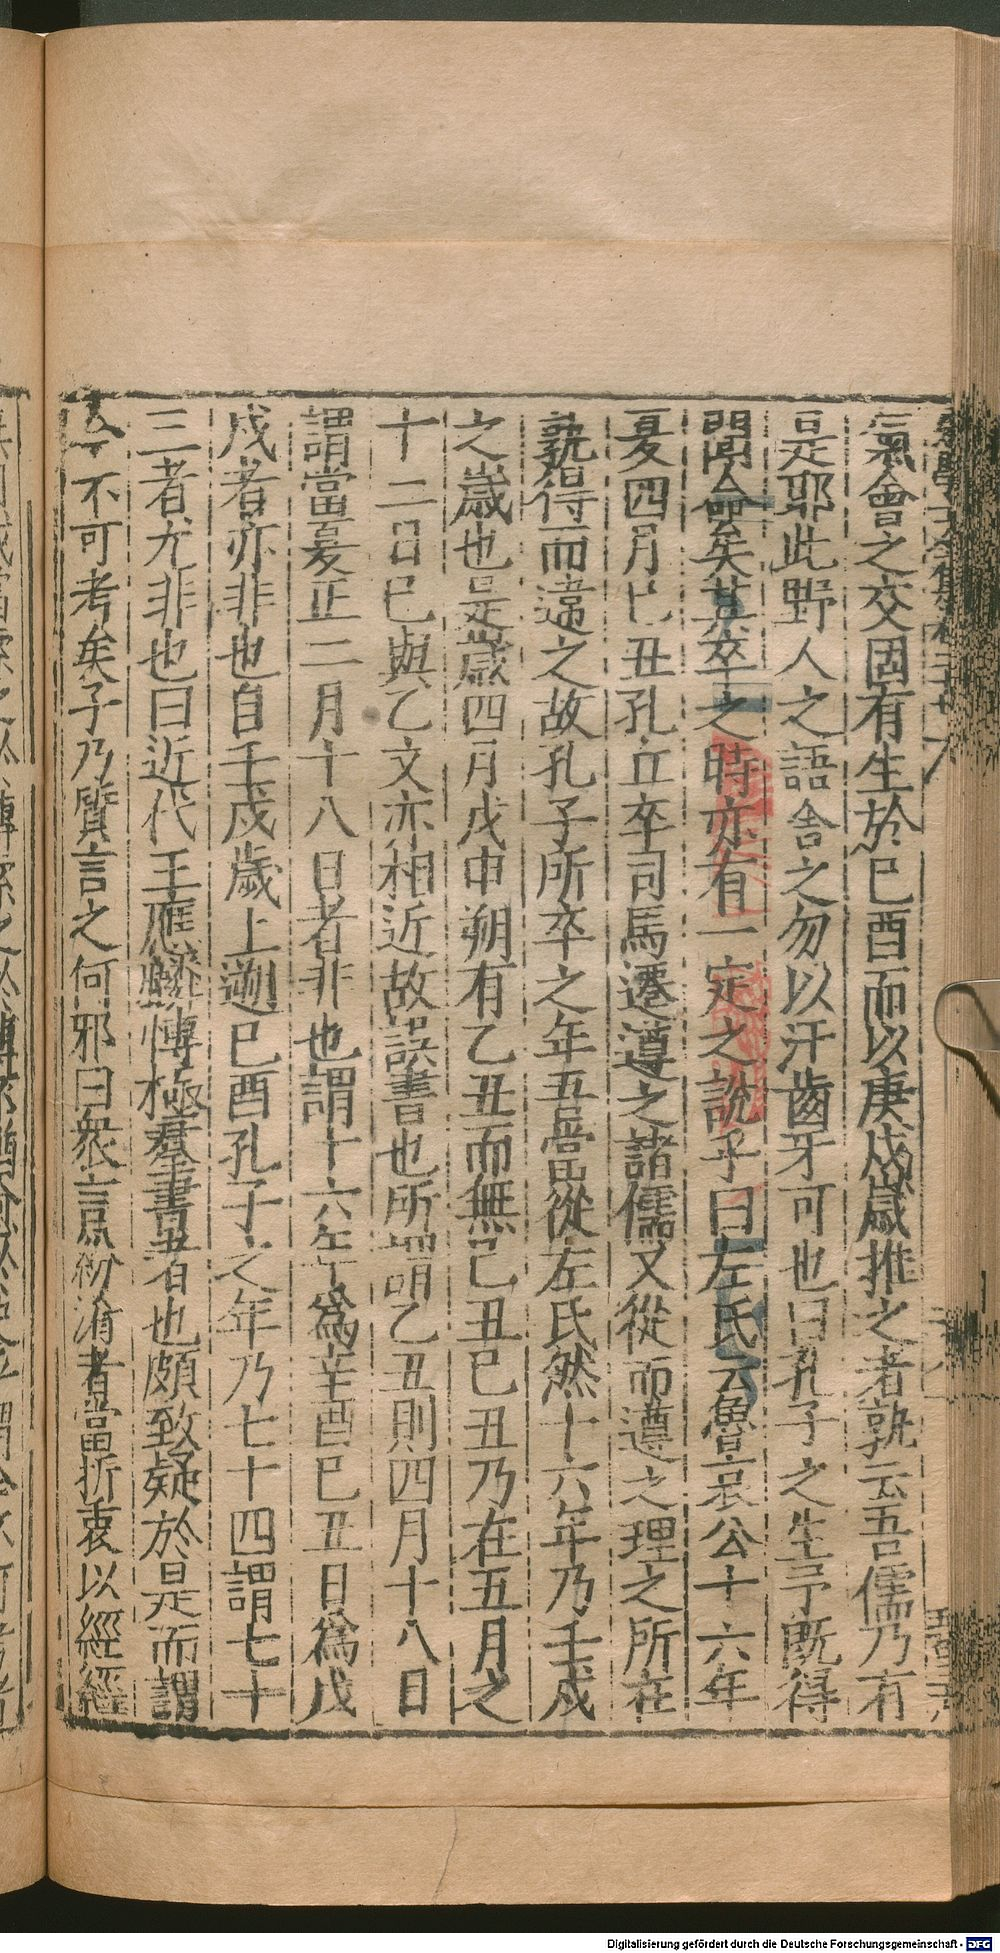 氣會之交固有生於已酉而以庚戌歲推之者孰云吾儒乃有
是耶此野人之語舍之勿以汗齒牙可也曰孔子之生予既得
聞命矣其卒之時亦有一定之說乎曰左氏云魯哀公十六年
夏四月已丑孔丘卒司馬遷遵之諸儒又從而遵之理之所在
孰得而違之故孔子所卒之年吾當從左氏然十六年乃壬戌
之歲也是歲四月戊申朔有乙丑而無己丑已丑乃在五月之
十二日已與乙文亦相近故誤書也所謂乙丑則四月十八日
謂當夏正二月十八日者非也謂十六年為辛酉已丑日為戊
戌者亦非也自壬戌歲上遡已酉孔子之年乃七十四謂七十
三者尤非也曰近代王應麟慱極羣書者也頗致疑於是而謂
今不可考矣子乃質言之何邪曰衆言紛淆者當折衷以經經
Digitalisierung gefördert durch die Deutsche Forschungsgemeinschaft - DFG